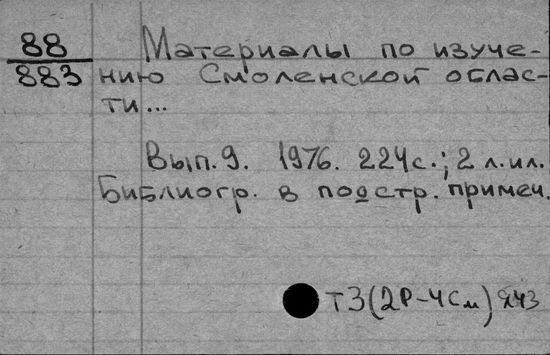 88
883
Материалы по изуче-
нию Смоленской облас-
ти...
Вып. 9. 1976. 224с.; 2 л. ил.
Библиогр. в подстр. примеч.
Т3(2Р-4См) я43